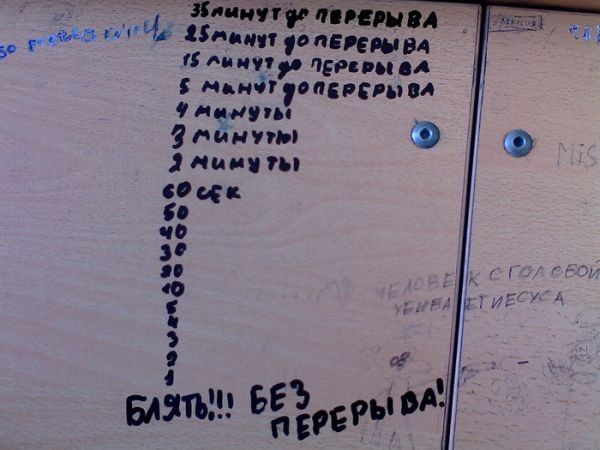 35 минут до ПЕРЕРЫВА
25 минут до ПЕРЕРЫВА
15 минут до ПЕРЕРЫВА
5 минут до ПЕРЕРЫВА
4 минуты
3 минуты
2 минуты
60 сек
50
40
30
20
10
5
4
3
2
1
БЛЯТЬ!!! БЕЗ
ПЕРЕРЫВА!
ЧЕЛОВЕК С ГОЛОВОЙ
УБИВАЕТ ИЕСУСА
MiS